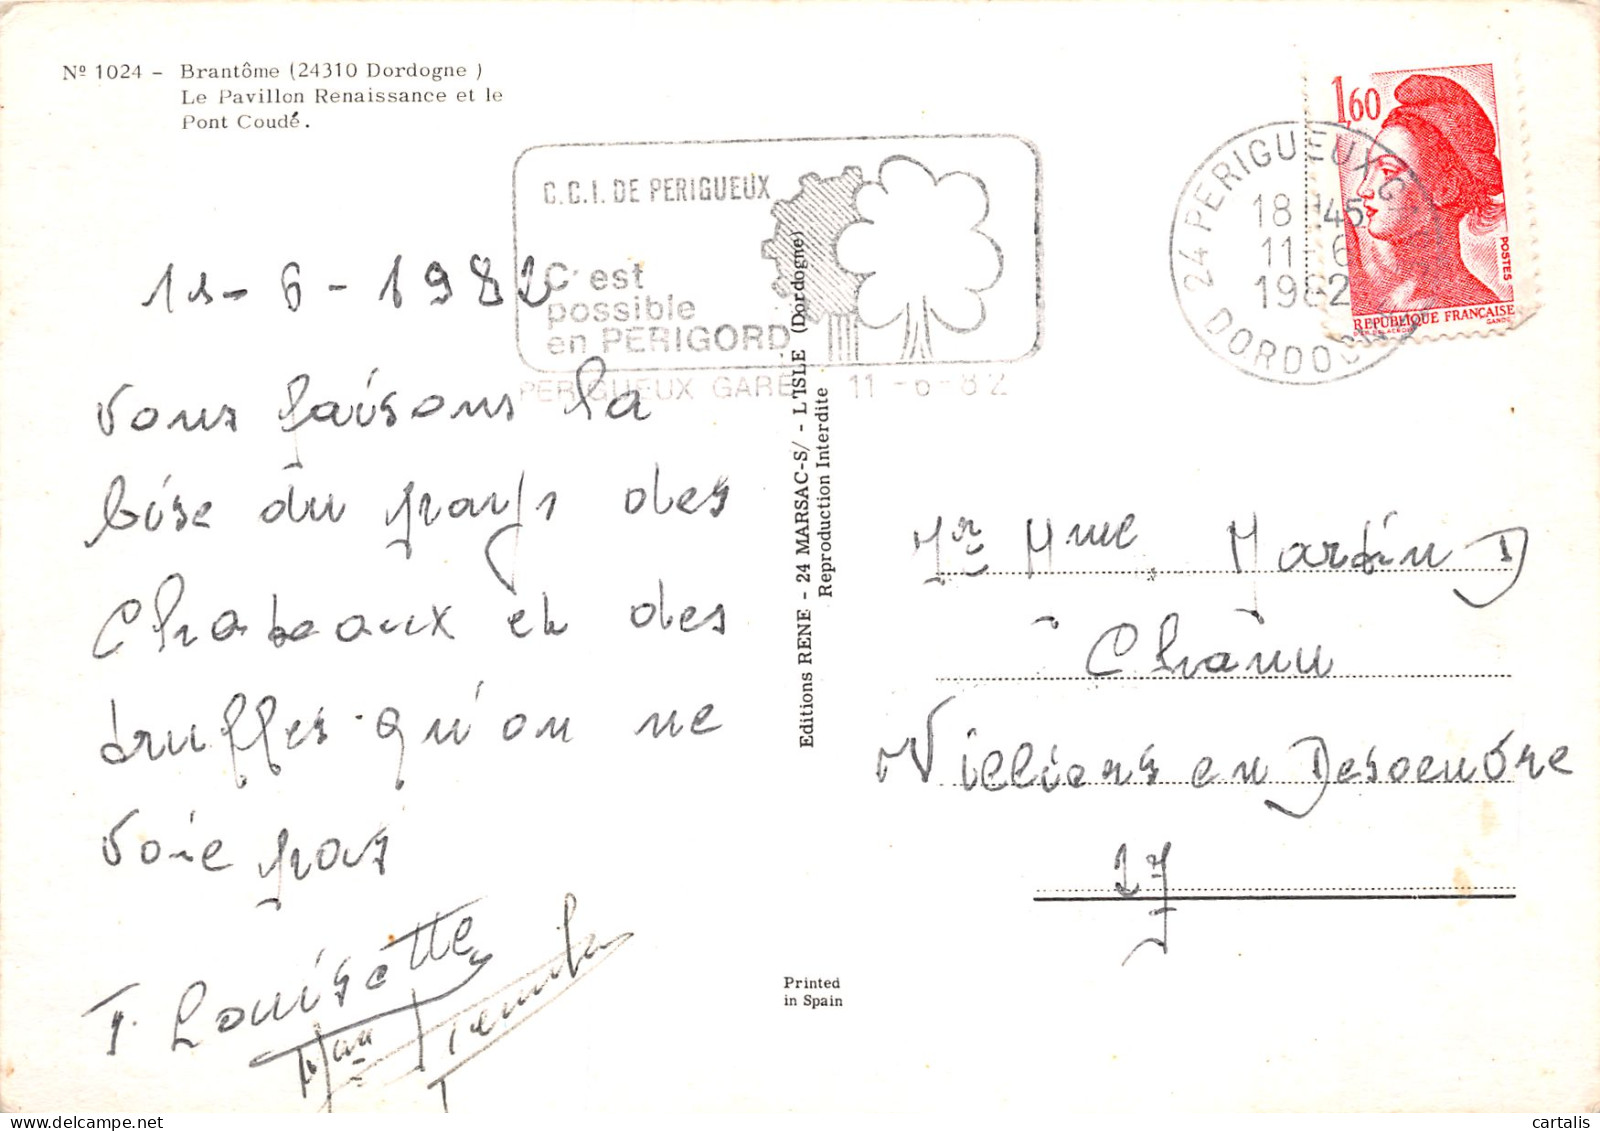 Nº 1024 - Brantôme (24310 Dordogne )
Le Pavillon Renaissance et le
Pont Coudé.
C.C.I. DE PERIGUEUX
C'est
possible
en PERIGORD
PERIGUEUX GARE 11-6-82
24 PERIGUEUX
18 H45
11-6
1982
DORDOGNE
1,60
POSTES
REPUBLIQUE FRANÇAISE
11-6-1982
Vous faisons la
bise du pays des
Chateaux et des
truffes qu'on ne
voie pas
T. Louisette
Editions RENE - 24 MARSAC-S/ - L'ISLE (Dordogne)
Reproduction Interdite
Mr Mme Martin D
Chanu
Villiers en Desoeuvre
27
Printed
in Spain
cartalis